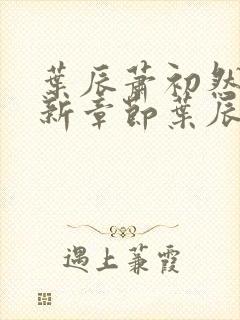 葉辰蕭初然
新章節葉辰
遇上蒹霞